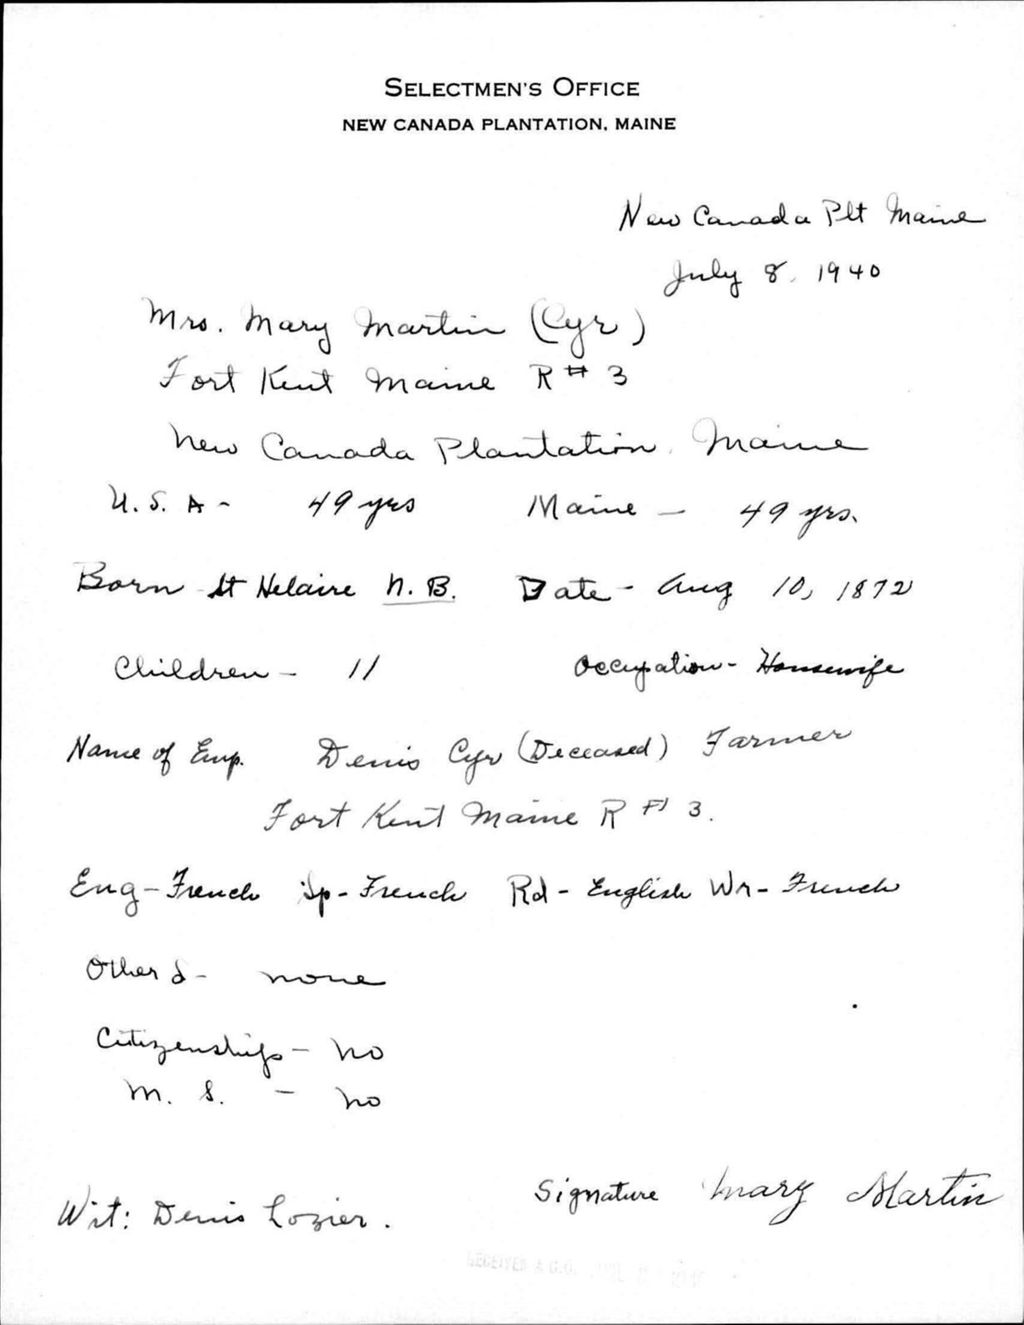 SELECTMEN'S OFFICE
NEW CANADA PLANTATION, MAINE
New Canada Plt Maine
July 8, 1940
Mrs. Mary Martin (Cyr)
Fort Kent Maine R # 3
New Canada Plantation, Maine
U.S.A - 49 yrs Maine - 49 yrs.
Born St Helaire N.B. Date - Aug 10, 1872
Children - 11 Occupation - Housewife
Name of Emp. Denis Cyr (Deceased) Farmer
Fort Kent Maine R # 3.
Eng - French Sp - French Rd - English Wr - French
Other S - none
Citizenship - no
M. S. - no
Signature Mary Martin
Wit: Denis Lozier.
RECEIVED A.G.O.